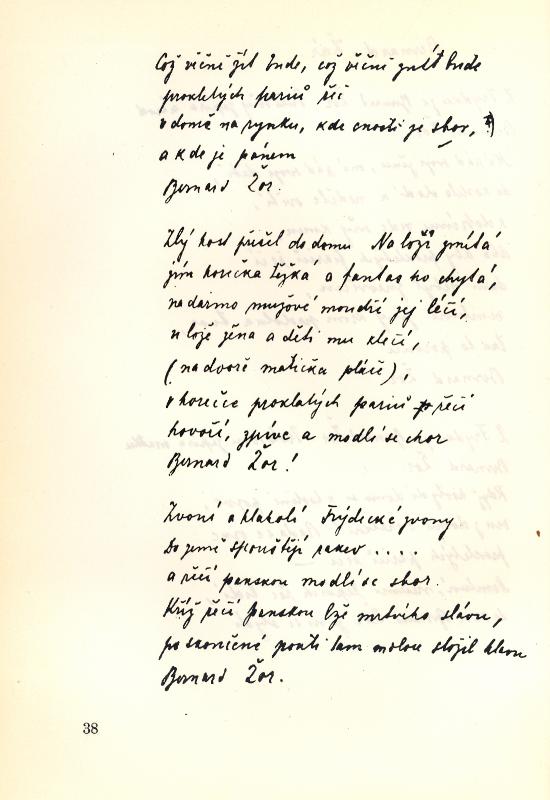 Což věčně žít bude, což věčně znít bude
prokletých pariů řeč
v domě na rynku, kde cností je sbor,
a kde je pánem
Bernard Žor.
Zlý host přišel do domu Na loži zmítá
jím horečka těžká a fantas ho chytá,
nadarmo mužové moudří jej léčí,
u lože žena a děti mu klečí,
(na dvoře matička pláče),
v horečce proklatých pariů řečí
hovoří, zpívá a modlí se chor
Bernard Žor!
Zvoní a hlaholí Frýdecké zvony
Do země spouštějí rakev ....
a řečí panskou modlí se sbor.
Kříž řečí panskou lže mrtvého slávu,
po skončené pouti tam molou složil hlavu
Bernard Žor.
38